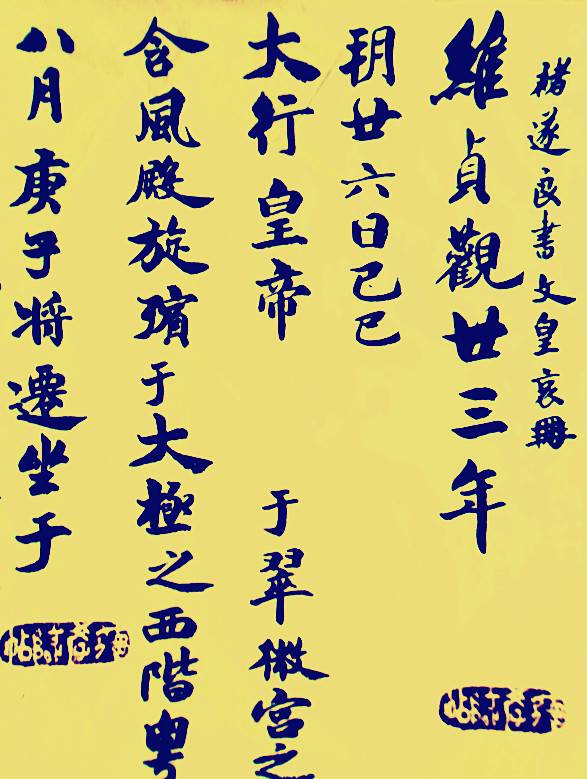 褚遂良書文皇哀冊
維貞觀廿三年
玥廿六日己巳
大行皇帝 于翠微宮之
含風殿旋殯于大極之西階粵
八月庚子將遷坐于